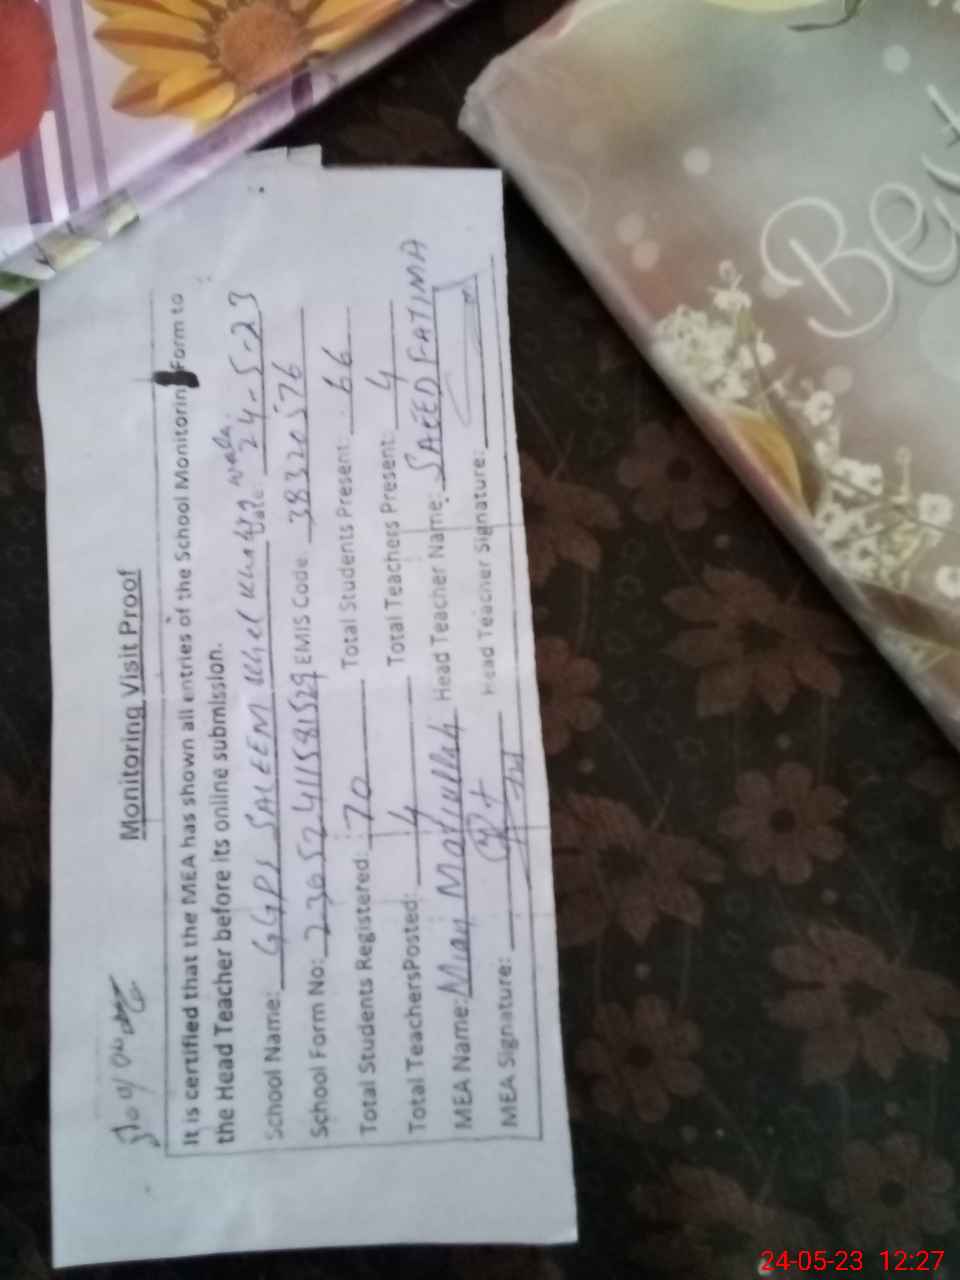 Monitoring Visit Proof
It is certified that the MEA has shown all entries of the School Monitoring Form to
the Head Teacher before its online submission.
School Name: GGPS SALEEM Khel Date: 24-5-23
School Form No: EMIS Code: 38320576
Total Students Registered: 70 Total Students Present: 66
Total TeachersPosted: 4 Total Teachers Present: 4
MEA Name: Head Teacher Name: SAEED FATIMA
MEA Signature: Head Teacher Signature:
Be
24-05-23 12:27